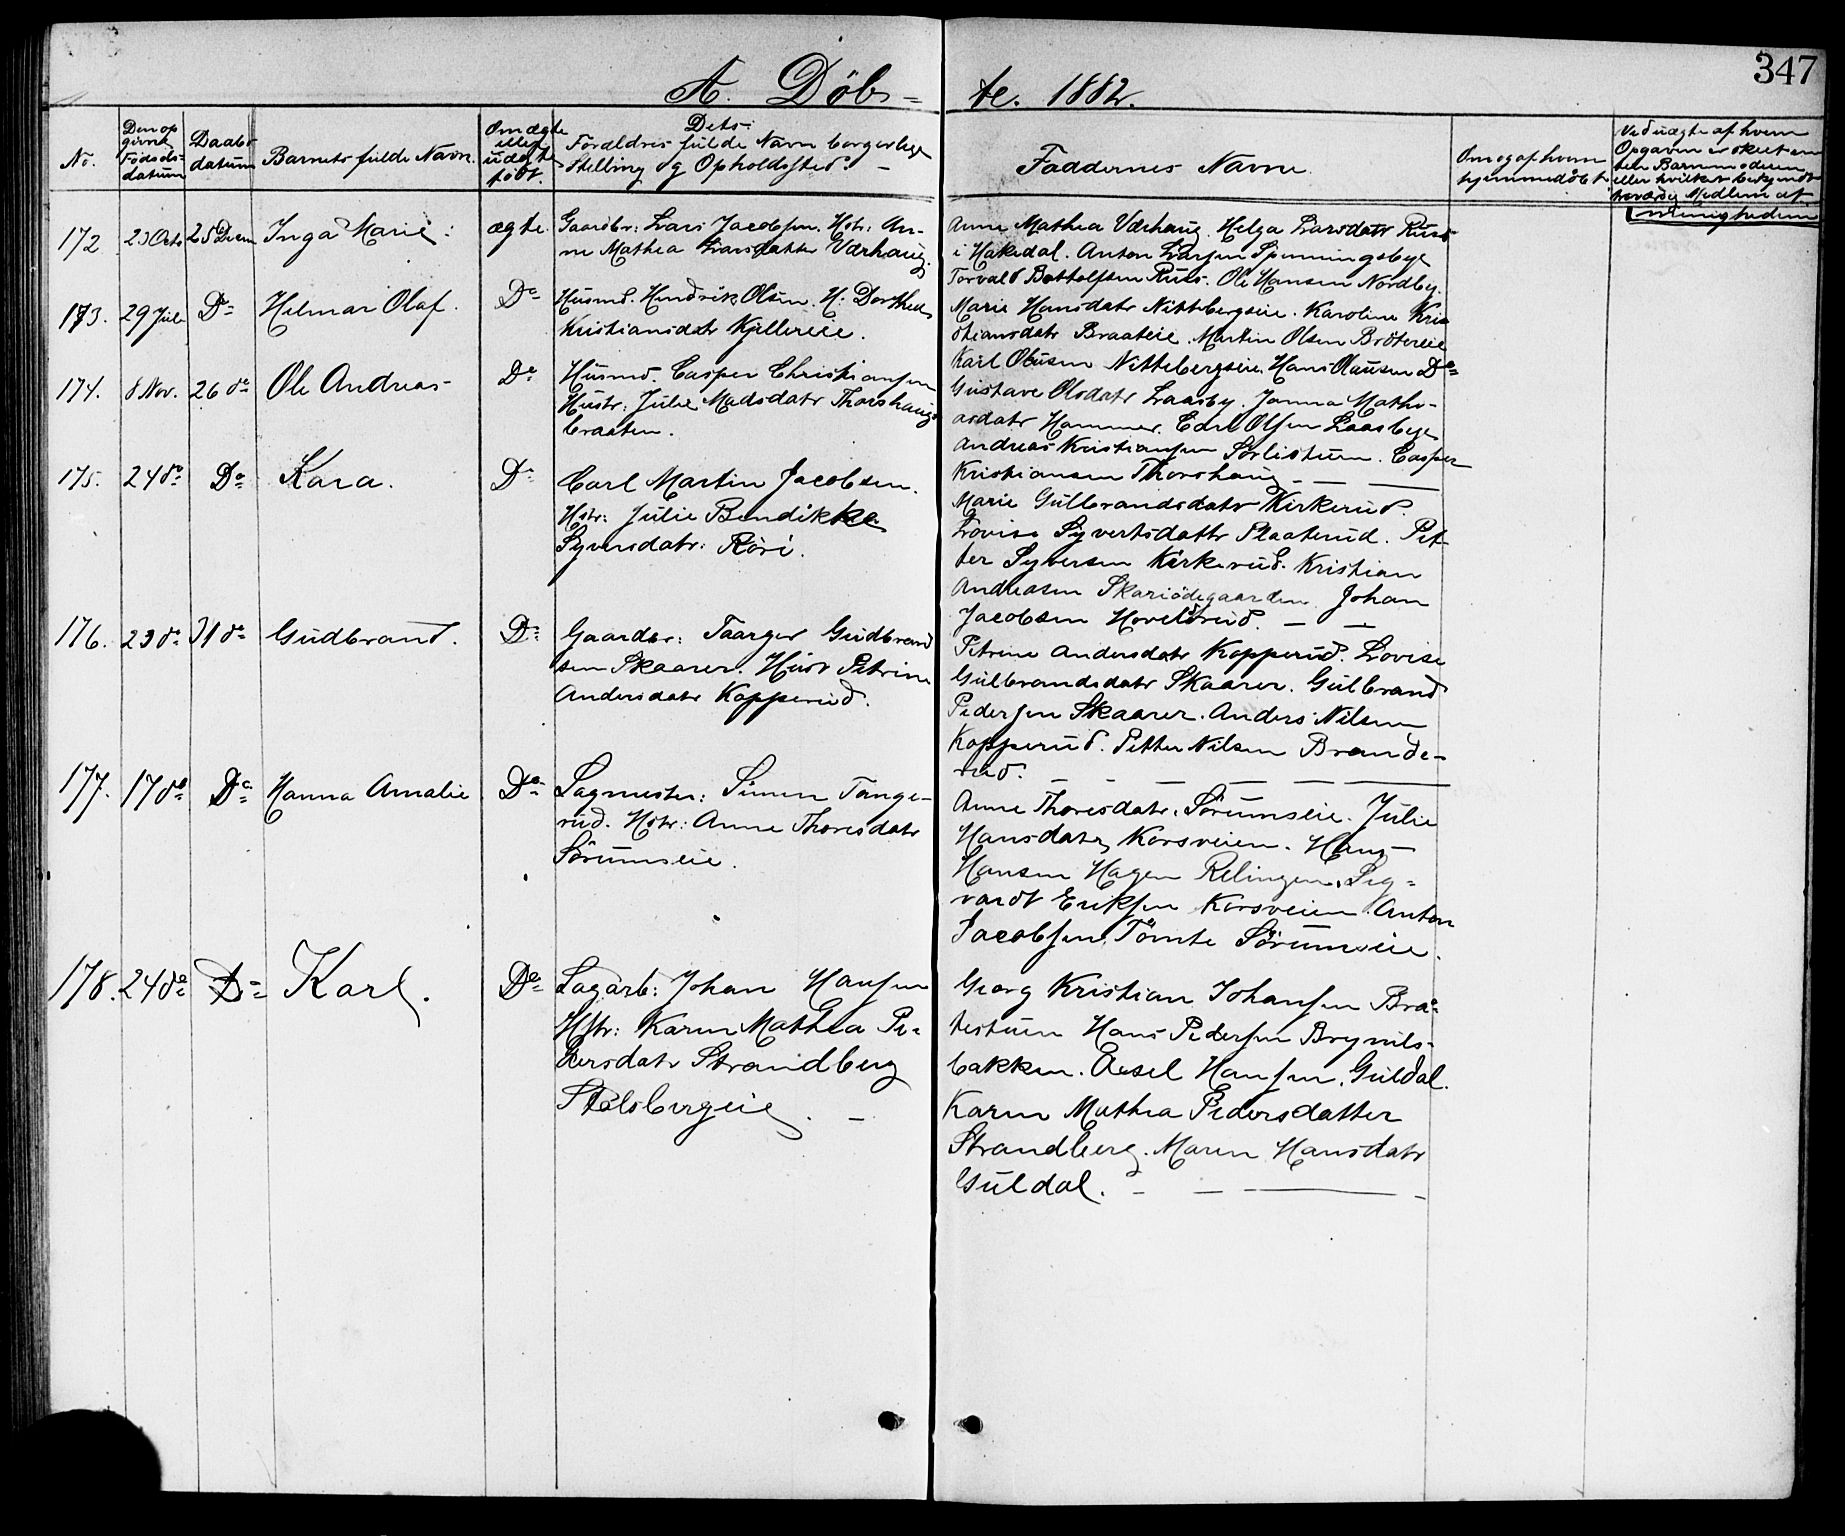 347
A. Döb- te. 1882.
No. Den op givne Födsels- datum Daabs datum Barnets fulde Navn. Om ægte eller uægte födt. Dets Forældres fulde Navn borgerlige Stilling og Opholdssted. Faddernes Navne. Om og af hvem hjemmedöbt Ved uægte af hvem Opgaven er skeet en ten Barnmoderen eller hvilket bekjendt troværdig Medlem af Menigheden
172 23 Octo 25 Decem Inga Marie: ægte. Gaardbr: Lars Jacobsen. Hstr: An-
ne Mathea Larsdatter Værhaug.
Anne Mathea Værhaug. Helga Larsdatr Russ
i Hakedal. Anton Larsen Spenningsbye
Torvald Bottolfsen Russ. Ole Hansen Nordby.
173. 29 Juli Do Helmar Olaf. Do Husmd. Hendrik Olsen. H: Dorthea
Kristiansdatr Kjellereie.
Marie Hansdatr Nittebergseie. Karoline Kris
tiansdatr Braateie. Martin Olsen Brötereie
Karl Olausen Nittebergseie. Hans Olausen Do
174. 8 Nov. 26 do Ole Andreas Do Husmd. Casper Christiansen
Hustr: Julie Madsdatr Thorshaug-
braaten.
Gustave Olsdatr Laasby. Janna Mathi-
asdatr Hammer. Carl Olsen Laasbye
Andreas Kristiansen Sörlistuen. Casper
Kristiansen Thorshaug. - — —
175. 24 do Do Kara. Do Carl Martin Jacobsen.
Hstr: Julie Bendikke
Syversdatr: Röri.
Marie Gulbrandsdatr Kirkerud.
Lovise Syvertsdattr Plaaterud. Pet-
ter Syversen Kirkerud. Kristian
Andreasen Skariödegaarden Johan
Jacobsen Hovelsrud. — —
176. 23 do 31 do Gudbrand. Do Gaardbr: Taarger Gudbrand
sen Skaarer. Hust Petrine
Andersdatr Kopperud.
Petrine Andersdatr Kopperud. Lovise
Gulbrandsdatr Skaarer. Gulbrand
Pedersen Skaarer. Anders Nilsen
Kopperud. Petter Nilsen Brande-
rud. — - — — —
177. 17 do Do Hanna Amalie Do Sagmester: Simen Tange-
rud. Hstr: Anne Thoresdatr
Sörumseie.
Anne Thoresdatr. Sörumseie. Julie
Hansdatr Korsveien. Hans
Hansen Hagen Relingen. Sig-
vardt Eriksen Korsveien. Anton
Jacobsen, Tömte Sörumseie.
178. 24 do Do Karl. Do Sagarb: Johan Hansen
Hstr: Karen Mathea Pe-
dersdatr Strandberg
Stalsbergeie. —
Georg Kristian Johansen Bra-
testuen Hans Pedersen Brynils-
bakken. Axel Hansen. Guldal.
Karen Mathea Pedersdatter
Strandberg. Maren Hansdatr
Guldal. - — —